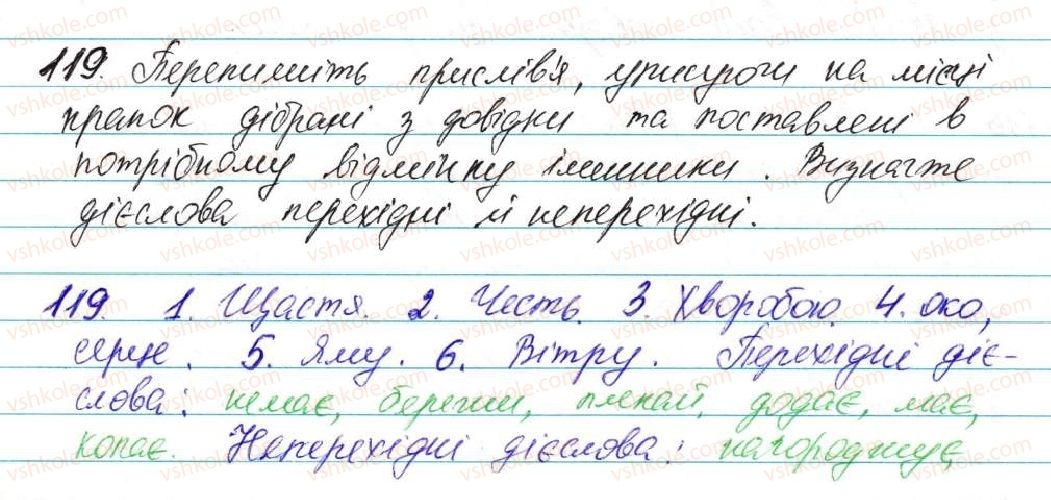 119. Перепишіть прислів'я, уписуючи на місці
крапок дібрані з довідки та поставлені в
потрібному відмінку іменники. Визначте
дієслова перехідні й неперехідні.
119. 1. Щастя. 2. Честь. 3. Хворобою. 4. око,
серце. 5. Яму. 6. Вітру. Перехідні діє-
слова: немає, бережи, плекай, додає, має,
копає. Неперехідні дієслова: нагороджує,